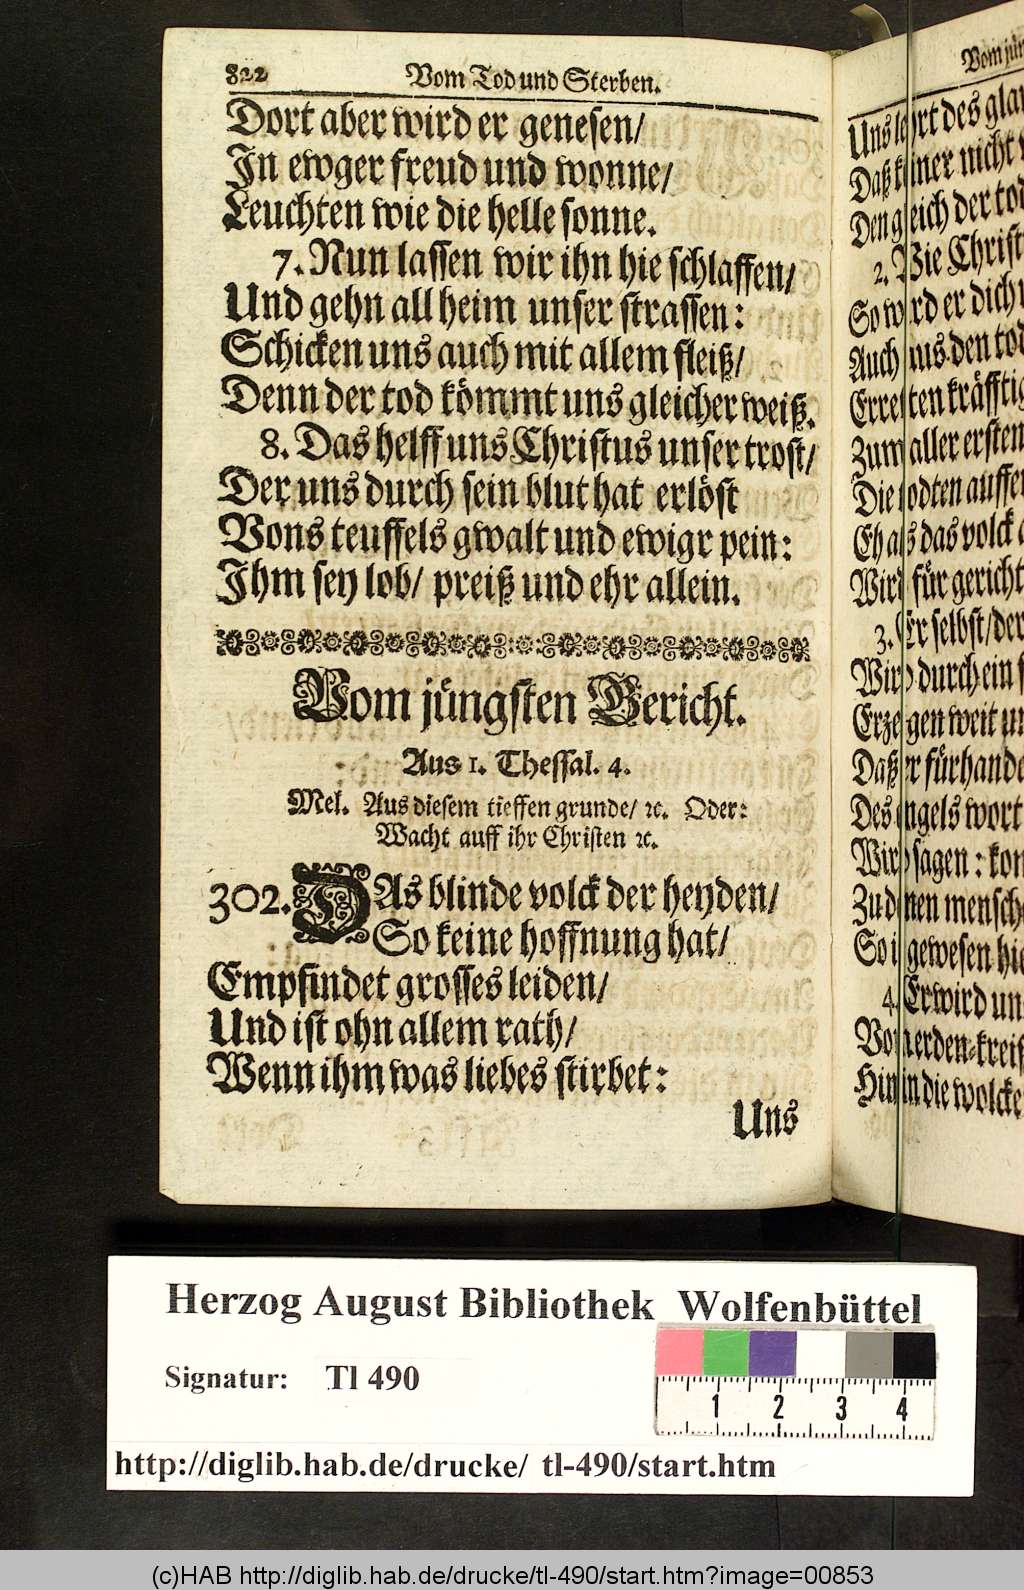 822 Vom Tod und Sterben.
Dort aber wird er genesen/
In ewger freud und wonne/
Leuchten wie die helle sonne.
7. Nun lassen wir ihn hie schlaffen/
Und gehn all heim unser strassen:
Schicken uns auch mit allem fleiß/
Denn der tod kömmt uns gleicher weiß.
8. Das helff uns Christus unser trost/
Der uns durch sein blut hat erlöst
Vons teuffels gwalt und ewigr pein:
Ihm sey lob/ preiß und ehr allein.
Vom jüngsten Gericht.
Aus 1. Thessal. 4.
Mel. Aus diesem tieffen grunde/ ꝛc. Oder:
Wacht auff ihr Christen ꝛc.
302. DAs blinde volck der heyden/
So keine hoffnung hat/
Empfindet grosses leiden/
Und ist ohn allem rath/
Wenn ihm was liebes stirbet:
Uns
Vom
des
nicht
der
2. Wie
So er dich
Auch aus den
aller ersten
Die
das volck
für gericht
3. Er selbst/ der
durch ein
weit
er
Des wort
sagen:
gewesen
4. Er wird
die
Herzog August Bibliothek Wolfenbüttel
Signatur: Tl 490
1 2 3 4
http://diglib.hab.de/drucke/ tl-490/start.htm
(c)HAB http://diglib.hab.de/drucke/tl-490/start.htm?image=00853